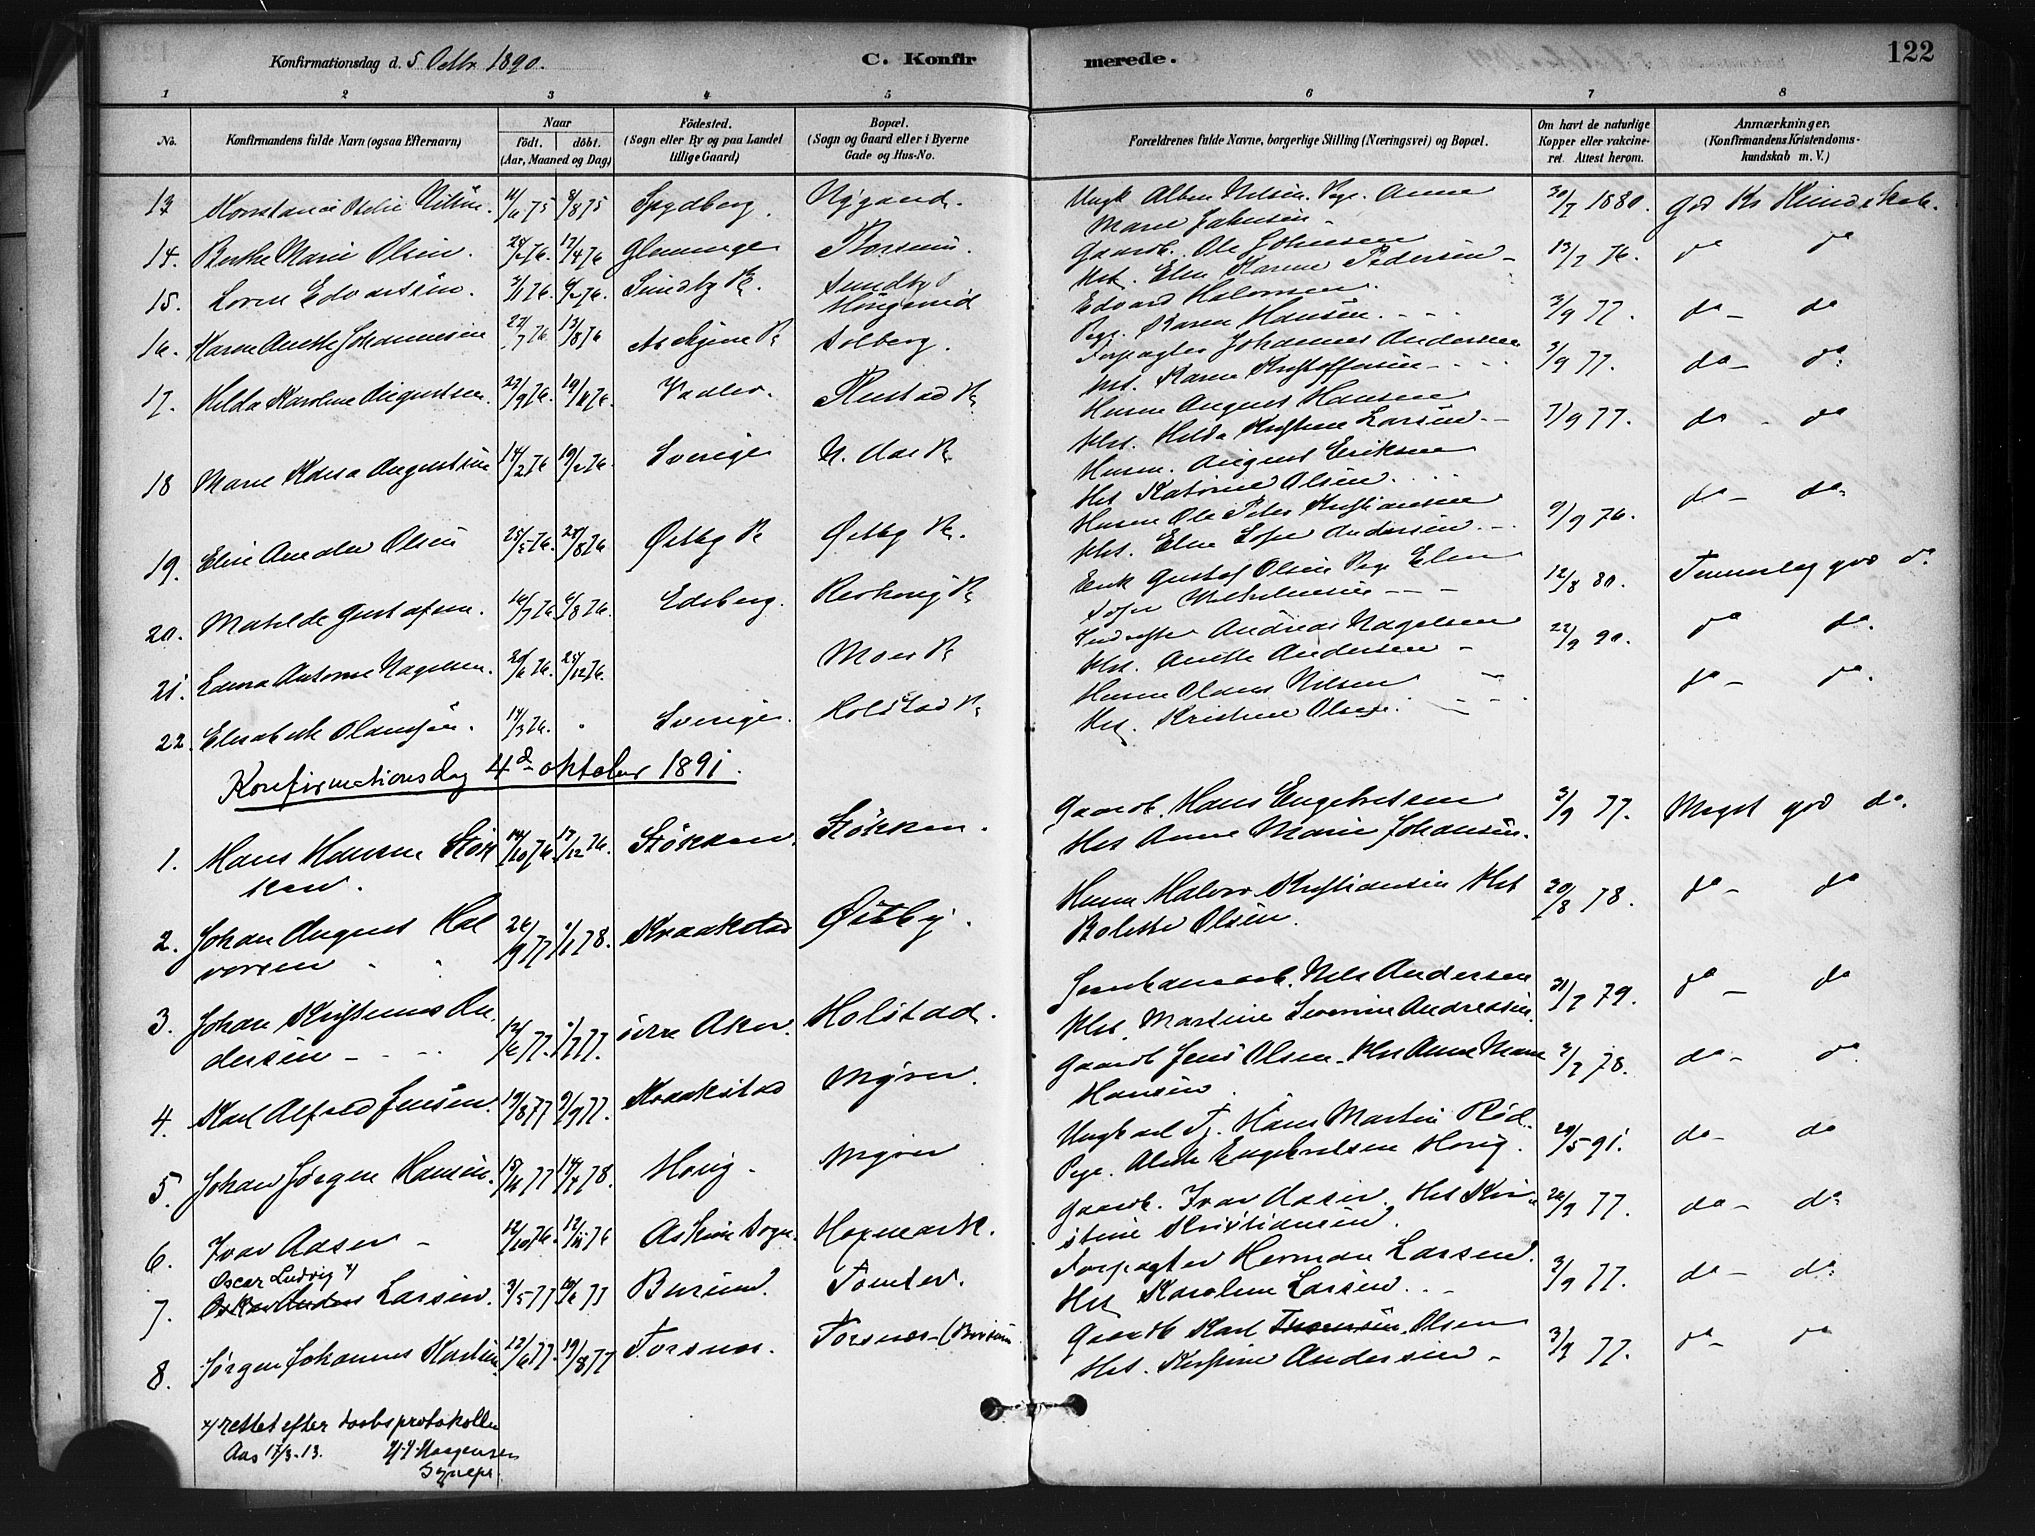 Konfirmationsdag d. 5 Octbr 1890.
C. Konfirmerede.
122
1 2 3 4 5 6 7 8
No.
Konfirmandens fulde Navn (ogsaa Efternavn)
Naar
født. døbt.
(Aar, Maaned og Dag)
Fødested.
(Sogn eller By og paa Landet
tillige Gaard)
Bopæl.
(Sogn og Gaard eller i Byerne
Gade og Hus-No.
Forældrenes fulde Navne, borgerlige Stilling (Næringsvei) og Bopæl.
Om havt de naturlige
Kopper eller vakcine-
ret. Attest herom.
Anmærkninger.
(Konfirmandens Kristendoms-
kundskab m. V.)
13 Konstance Otelie Nilsen. 6/8 75 Spydberg. Nygaard. Ungk Alben Nilsen. Pge. Anne
Marie Jahnsen. 30/7 1880. god Kr Kundskab.
14. Berthe Marie Olsen. 17/4 76 Glemminge Borsum. Gaardb. Ole Johnsen
Hst. Elen Karine Pedersen 13/7 76. do do
15. Lovise Edvartsen. Sundby Kr. Sundby
Edvard Halvorsen.
Pge. Karen Hansen. 3/9 77. do do
16. Karen Anette Johannesen 23/7 76. 13/8 76 Askim Solberg. Forpagter Johannes Andersen
Hst. Karen Kristoffersen 3/9 77. do do
17. Hilda Karoline Augustsen. 23/9 76. 19/11 76. Vaaler. Rustad Kr Husm August Hansen
Hst. Hilda Kristine Larsen 7/9 77. do do
18 Marie Kaisa Augustsen 14/2 76 Sverige N. Aas Kr Husm. August Eriksen
Hst Katrine Olsen. do do
19. Elise Amalie Olsen 25/5 76. 20/8 76 Østby Kr Østby Kr. Husm Ole Peter Kristiansen
Hst. Elen Sofie Andersen 9/9 76.
20. Matilde Gustafsen. 16/7 76 6/8 76. Edsberg. Kr Erik Gustaf Olsen Pge Elen
Sofie Vilhelmsen 12/8 80. Temmelig god do
21. Laura Antonie Nagelsen. 25/12 76. Moer Kr Andreas Nagelsen
Hst. Anette Andersen 22/9 90. do do.
22. Elisabeth Olausen. 14/3 76. Sverige. Holstad Kr Husm Olaus Nilsen
Hst. Kristine Olsen. do do.
Konfirmationsdag 4de oktober 1891.
1. Hans Hansen Støk
ken. 14/10 76. 17/12 76. Støkken. Støkken. Gaardb. Hans Engebretsen
Hst Anne Marie Johansen. 3/9 77. Meget god do.
2. Johan August Hal
vorsen 26/9 77 1/1 78. Kraakstad Østby. Husm Halvor Kristiansen Hst
Bolette Olsen. 20/8 78. do do
3. Johan Kristinus An
dersen 12/6 77. 1/7 77. Østre Aker. Holstad. Jernbanearb. Nils Andersen
Hst. Martine Severine Andreasen. 31/7 79. do do
4. Karl Alfred Jensen. 19/8 77 9/9 77. Kraakstad Myrer. Gaardb Jens Olsen. Hst Anne Marie
Hansen. 2/7 78. do do
5. Johan Jørgen Hansen. Horig. Myrer Ungkarl Tj. Hans Martin Rød.
Pge. Alette Engebretsen Horig. 29/5 91. do do
6. Ivar Aasen 12/10 76. 12/11 76 Askim Sogn. Hegmark. Gaardb. Ivar Aasen. Hst Kri-
stine Kristiansen. 26/9 77. do do
7. Oscar Ludvig x)
Oskar Anders Larsen. 3/5 77 20/6 77 Burum. Tomter. Forpagter Herman Larsen.
Hst Karoline Larsen. 3/9 77. do do
8. Jørgen Johannes Karlsen. 12/6 77. 19/8 77 Torsnes. Torsnes (Borsum Gaardb Karl Thoresen. Olsen
Hst. Kristine Andersen 3/9 77. do do
x) rettet efter daabsprotokollen
Aas 17/3-13. H. J. Haagensen
Sognepr.